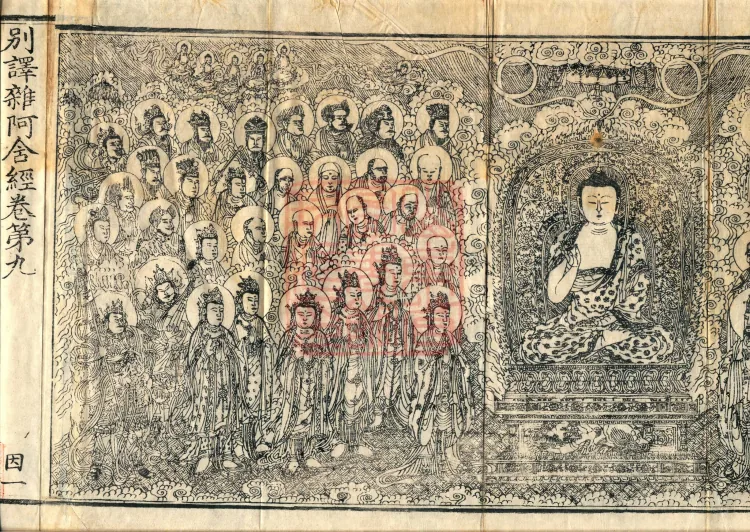 別譯雜阿含經卷第九
因一